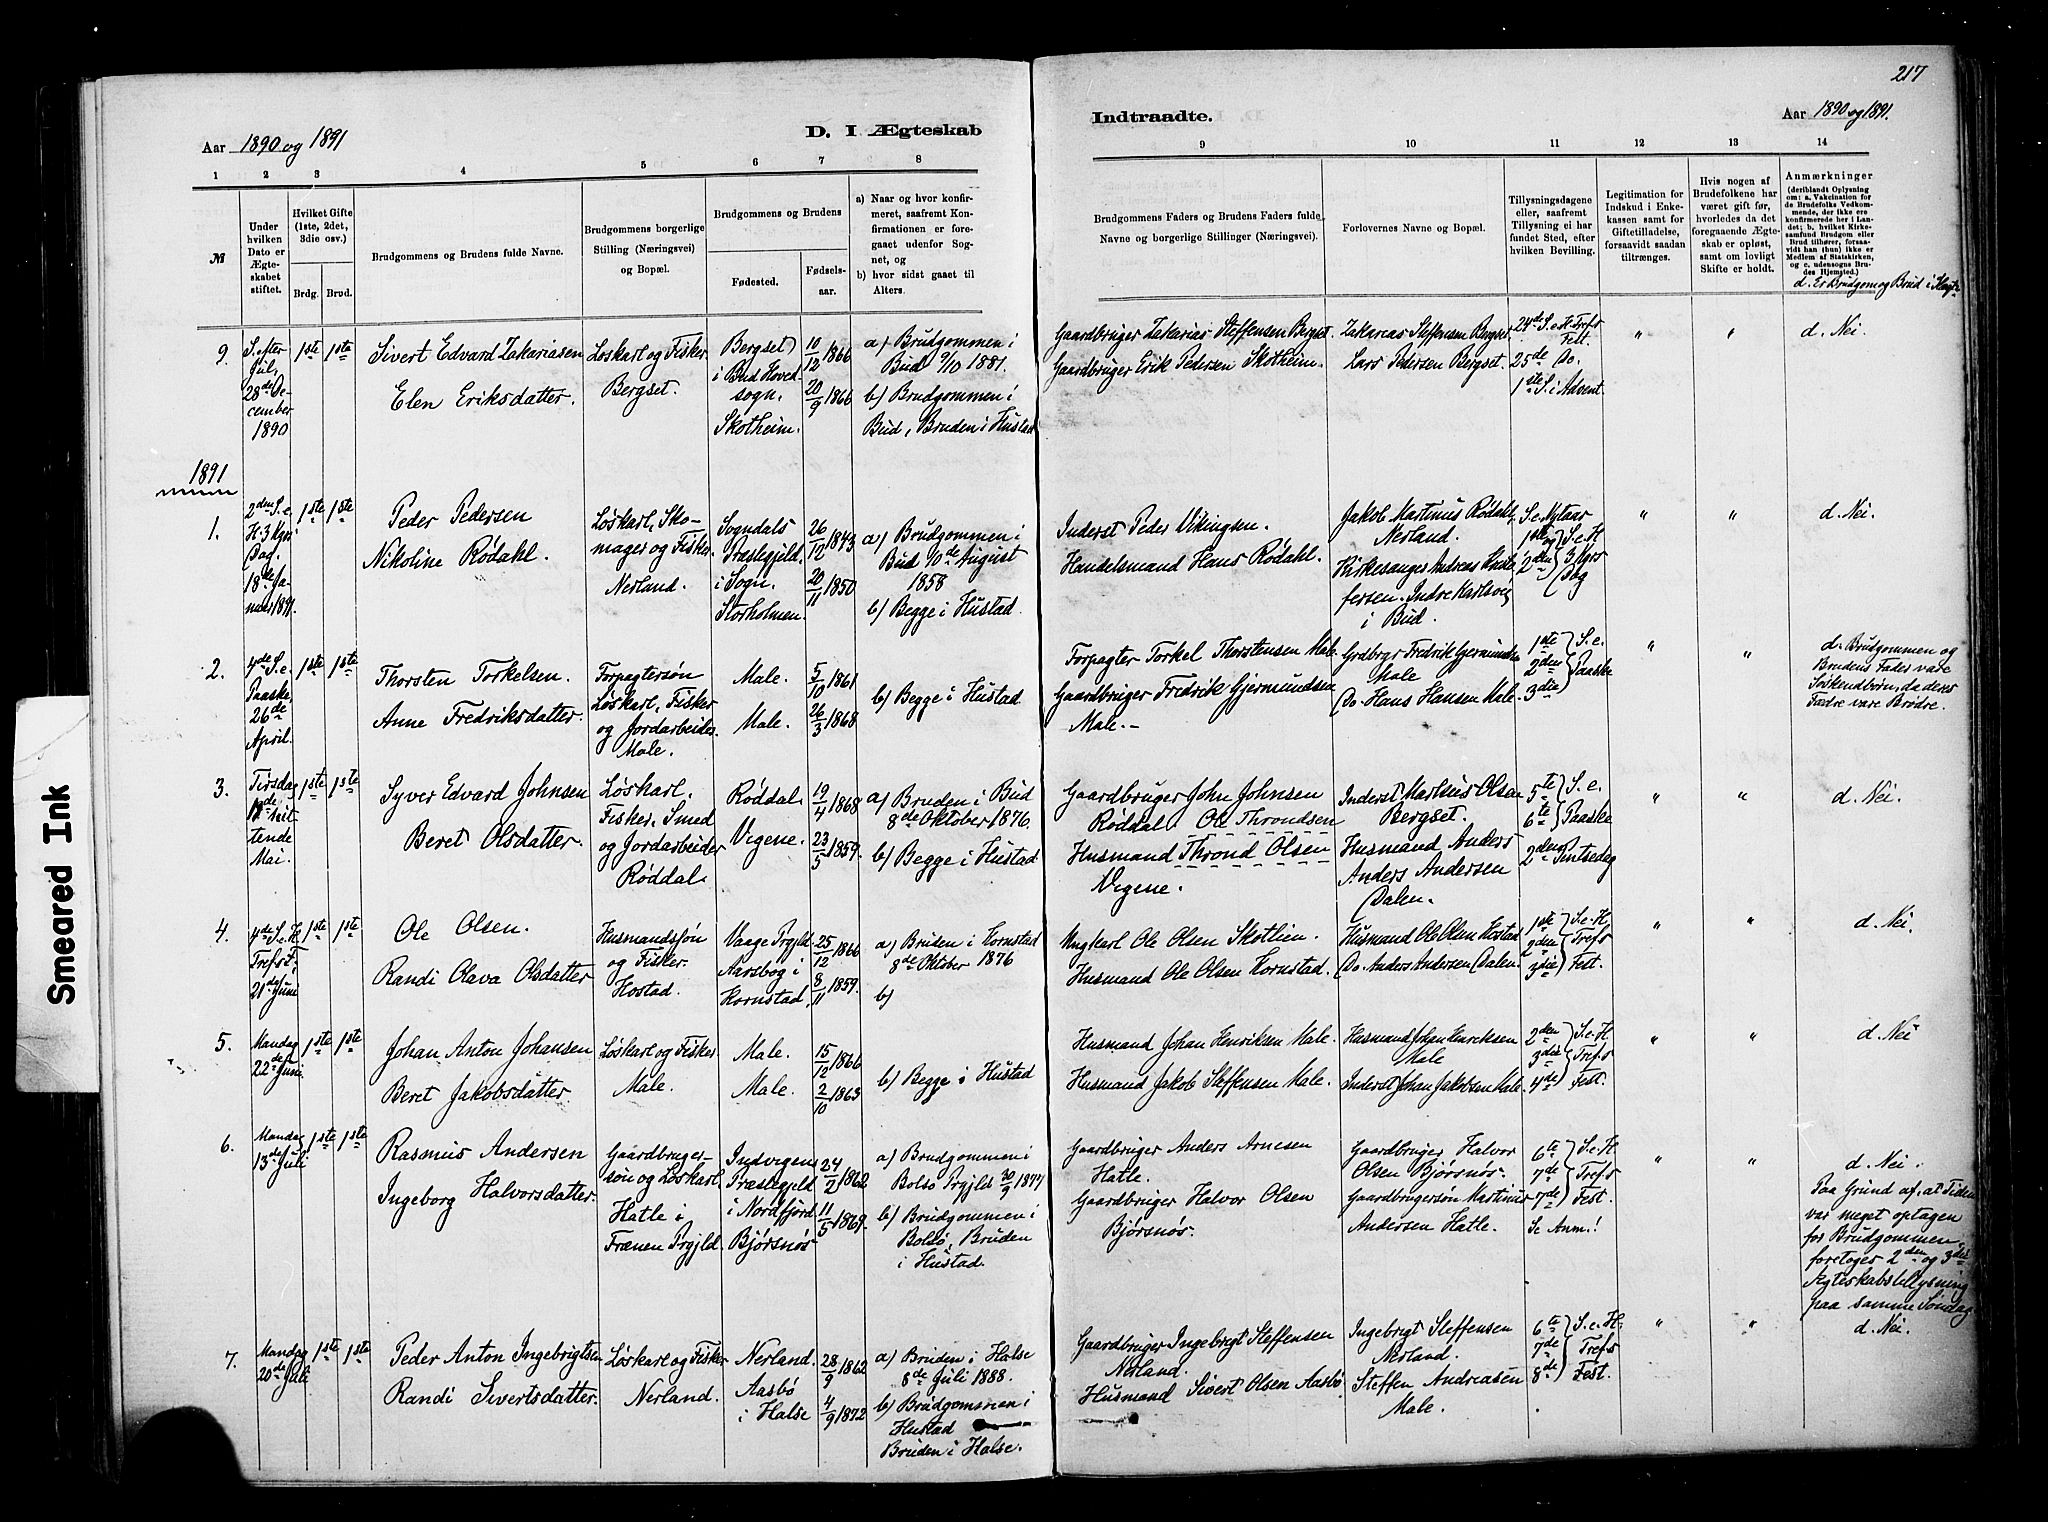 217
Aar 1890 og 1891
D. I Ægteskab
Indtraadte.
Aar 1890 og 1891.
1 2 3 4 5 6 7 8
9 10 11 12 13 14
№
Under hvilken Dato er Ægteskabet stiftet.
Hvilket Gifte (1ste, 2det, 3die osv.)
Brdg. Brud.
Brudgommens og Brudens fulde Navne.
Brudgommens borgerlige Stilling (Næringsvei) og Bopæl.
Brudgommens og Brudens
Fødested.
Fødselsaar.
a) Naar og hvor konfirmeret, saafremt Konfirmationen er foregaaet udenfor Sognet, og
b) hvor sidst gaaet til Alters.
Brudgommens Faders og Brudens Faders fulde Navne og borgerlige Stillinger (Næringsvei).
Forlovernes Navne og Bopæl.
Tillysningsdagene eller, saafremt Tillysning ei har fundet Sted, efter hvilken Bevilling.
Legitimation for Indskud i Enkekassen samt for Giftetilladelse, forsaavidt saadan tiltrænges.
Hvis nogen af Brudefolkene har været gift før, hvorledes da det foregaaende Ægteskab er opløst, samt om lovligt Skifte er holdt.
Anmærkninger
(deriblandt Oplysning om: a. Vakcination for de Brudefolks Vedkommende, der ikke ere konfirmerede her i Landet; b. hvilket Kirkesamfund Brudgom eller Brud tilhører, forsaavidt han (hun) ikke er Medlem af Statskirken, og c. udensogns Brudes Hjemsted.)
d. Er Brudgom og Brud i Slægt
9. S. efter Jul, 28de December 1890
1ste 1ste
Sivert Edvard Zakariasen
Elen Eriksdatter.
Løskarl og Fisker.
Bergset.
Bergset i Bud Hovedsogn.
Skotheim.
10/12 1866
20/9 1866
a) Brudgommen i
Bud 9/10 1881.
b) Brudgommen i
Bud, Bruden i Hustad
Gaardbruger Zakarias Steffensen Bergset.
Gaardbruger Erik Pedersen Skotheim.
Zakarias Steffensen Bergset.
Lars Pedersen Bergset.
24de S. e. H. Tref. Fest.
25de Do.
1ste S. i Advent.
" " d. Nei
1891
1. 2den S. e. H. 3 Kgrs Dag. 18de Januar 1891.
1ste 1ste
Peder Pedersen
Nikoline Rødahl.
Løskarl, Skomager og Fisker.
Nerland.
Sogndals Præstegjeld. i Sogn.
Storholmen.
26/12 1843
20/11 1850
a) Brudgommen i
Bud 10de August
1858
b) Begge i Hustad.
Inderst Peder Vikingsen.
Handelsmand Hans Rødahl.
Jakob Martinus Rødahl,
Nerland.
Kirkesanger Andreas
Indre Karlsvig
i Bud.
S. e. Nytaar
1ste og 2den S. e. H. 3 Kgrs Dag
" " d. Nei.
2. 4de S. e. Paaske 26de April.
1ste 1ste
Thorsten Torkelsen.
Anne Fredriksdatter.
Forpagtersøn
Løskarl, Fisker
og Jordarbeider.
Male.
Male.
Male.
5/10 1861
26/3 1868
b) Begge i Hustad
Forpagter Torkel Thorstensen Male.
Gaardbruger Fredrik Gjermundsen
Male.
Grdbrgr Fredrik Gjermundsen
Male
Do. Hans Hansen Male.
1ste 2den 3die S. e. Paaske
" " d. Brudgommen og
Brudens Fader vare
Søskendbørn, da deres
Fædre vare Brødre.
3. Tirsdag 19de Mai.
1ste 1ste
Syver Edvard Johnsen
Beret Olsdatter.
Løskarl.
Fisker. Smed
og Jordarbeider
Røddal.
Røddal.
Vigene.
19/4 1868
23/5 1859.
a) Bruden i Bud
8de Oktober 1876.
b) Begge i Hustad.
Gaardbruger John Johnsen
Røddal. Ole Throndsen
Husmand Thrond Olsen
Vigene.
Inderst Markus Olsen
Bergset.
Husmand Anders
Anders Andersen
Dalen.
5te 6te S. e. Paaske
2den Pintsedag
" " d. Nei.
4. 4de S. e. H. Tref. F. 21de Juni
1ste 1ste
Ole Olsen.
Randi Olava Olsdatter
Husmandssøn
og Fisker.
Hostad.
Vaage Prgjld.
Aarsbog i
Kornstad.
25/12 1866
8/11 1859.
a) Bruden i Kornstad
8de Oktober 1876
b)
Ungkarl Ole Olsen Skotlien.
Husmand Ole Olsen Kornstad.
Husmand Ole Olsen Hostad
Do. Anders Andersen Dalen.
1ste 2den 3die S. e. H. Tref. Fest.
" " d. Nei.
5. Mandag 22de Juni.
1ste 1ste
Johan Anton Johansen
Beret Jakobsdatter.
Løskarl og Fisker.
Male.
Male.
Male.
15/12 1866
2/10 1863
b) Begge i Hustad
Husmand Johan Henriksen Male.
Husmand Jakob Steffensen Male.
Husmand Johan Henriksen
Male
Inderst Johan Jakobsen Male.
2den 3die 4de S. e. H. Tref. Fest.
" " d. Nei
6. Mandag 13de Juli
1ste 1ste
Rasmus Andersen
Ingeborg Halvorsdatter.
Gaardbrugersøn og Løskarl.
Hatle i
Frænen Prgjld.
Indvigens
Præstegjeld
i Nordfjord.
Bjørsnøs.
24/2 1862
11/5 1869
a) Brudgommen i
Bolsø Prgjld 30/9 1877
b) Brudgommen i
Bolsø, Bruden
i Hustad.
Gaardbruger Anders Arnesen
Hatle.
Gaardbruger Halvor Olsen
Bjørsnøs.
Gaardbruger Halvor
Olsen Bjørsnøs.
Gaardbrugersøn Martinus
Andersen Hatle.
6te 7de 7de S. e. H. Tref. Fest.
Se Anm.!
" " d. Nei.
Paa Grund af, at Tiden
var meget optagen
for Brudgommen,
foretoges 2den og 3die
Ægteskabstillysning
paa samme Søndag.
7. Mandag 20de Juli
1ste 1ste
Peder Anton Ingebrigtsen
Randi Sivertsdatter.
Løskarl og Fisker
Nerland.
Nerland.
Aasbø
i Halse
28/9 1862
4/9 1872
a) Bruden i Halse
8de Juli 1888.
b) Brudgommen i
Hustad
Bruden i Halse.
Gaardbruger Ingebrigt Steffensen
Nerland.
Husmand Sivert Olsen Aasbø
Ingebrigt Steffensen
Nerland.
Steffen Andreasen
Male.
6te 7de 8de S. e. H. Tref. Fest.
" " d. Nei.
Smeared Ink